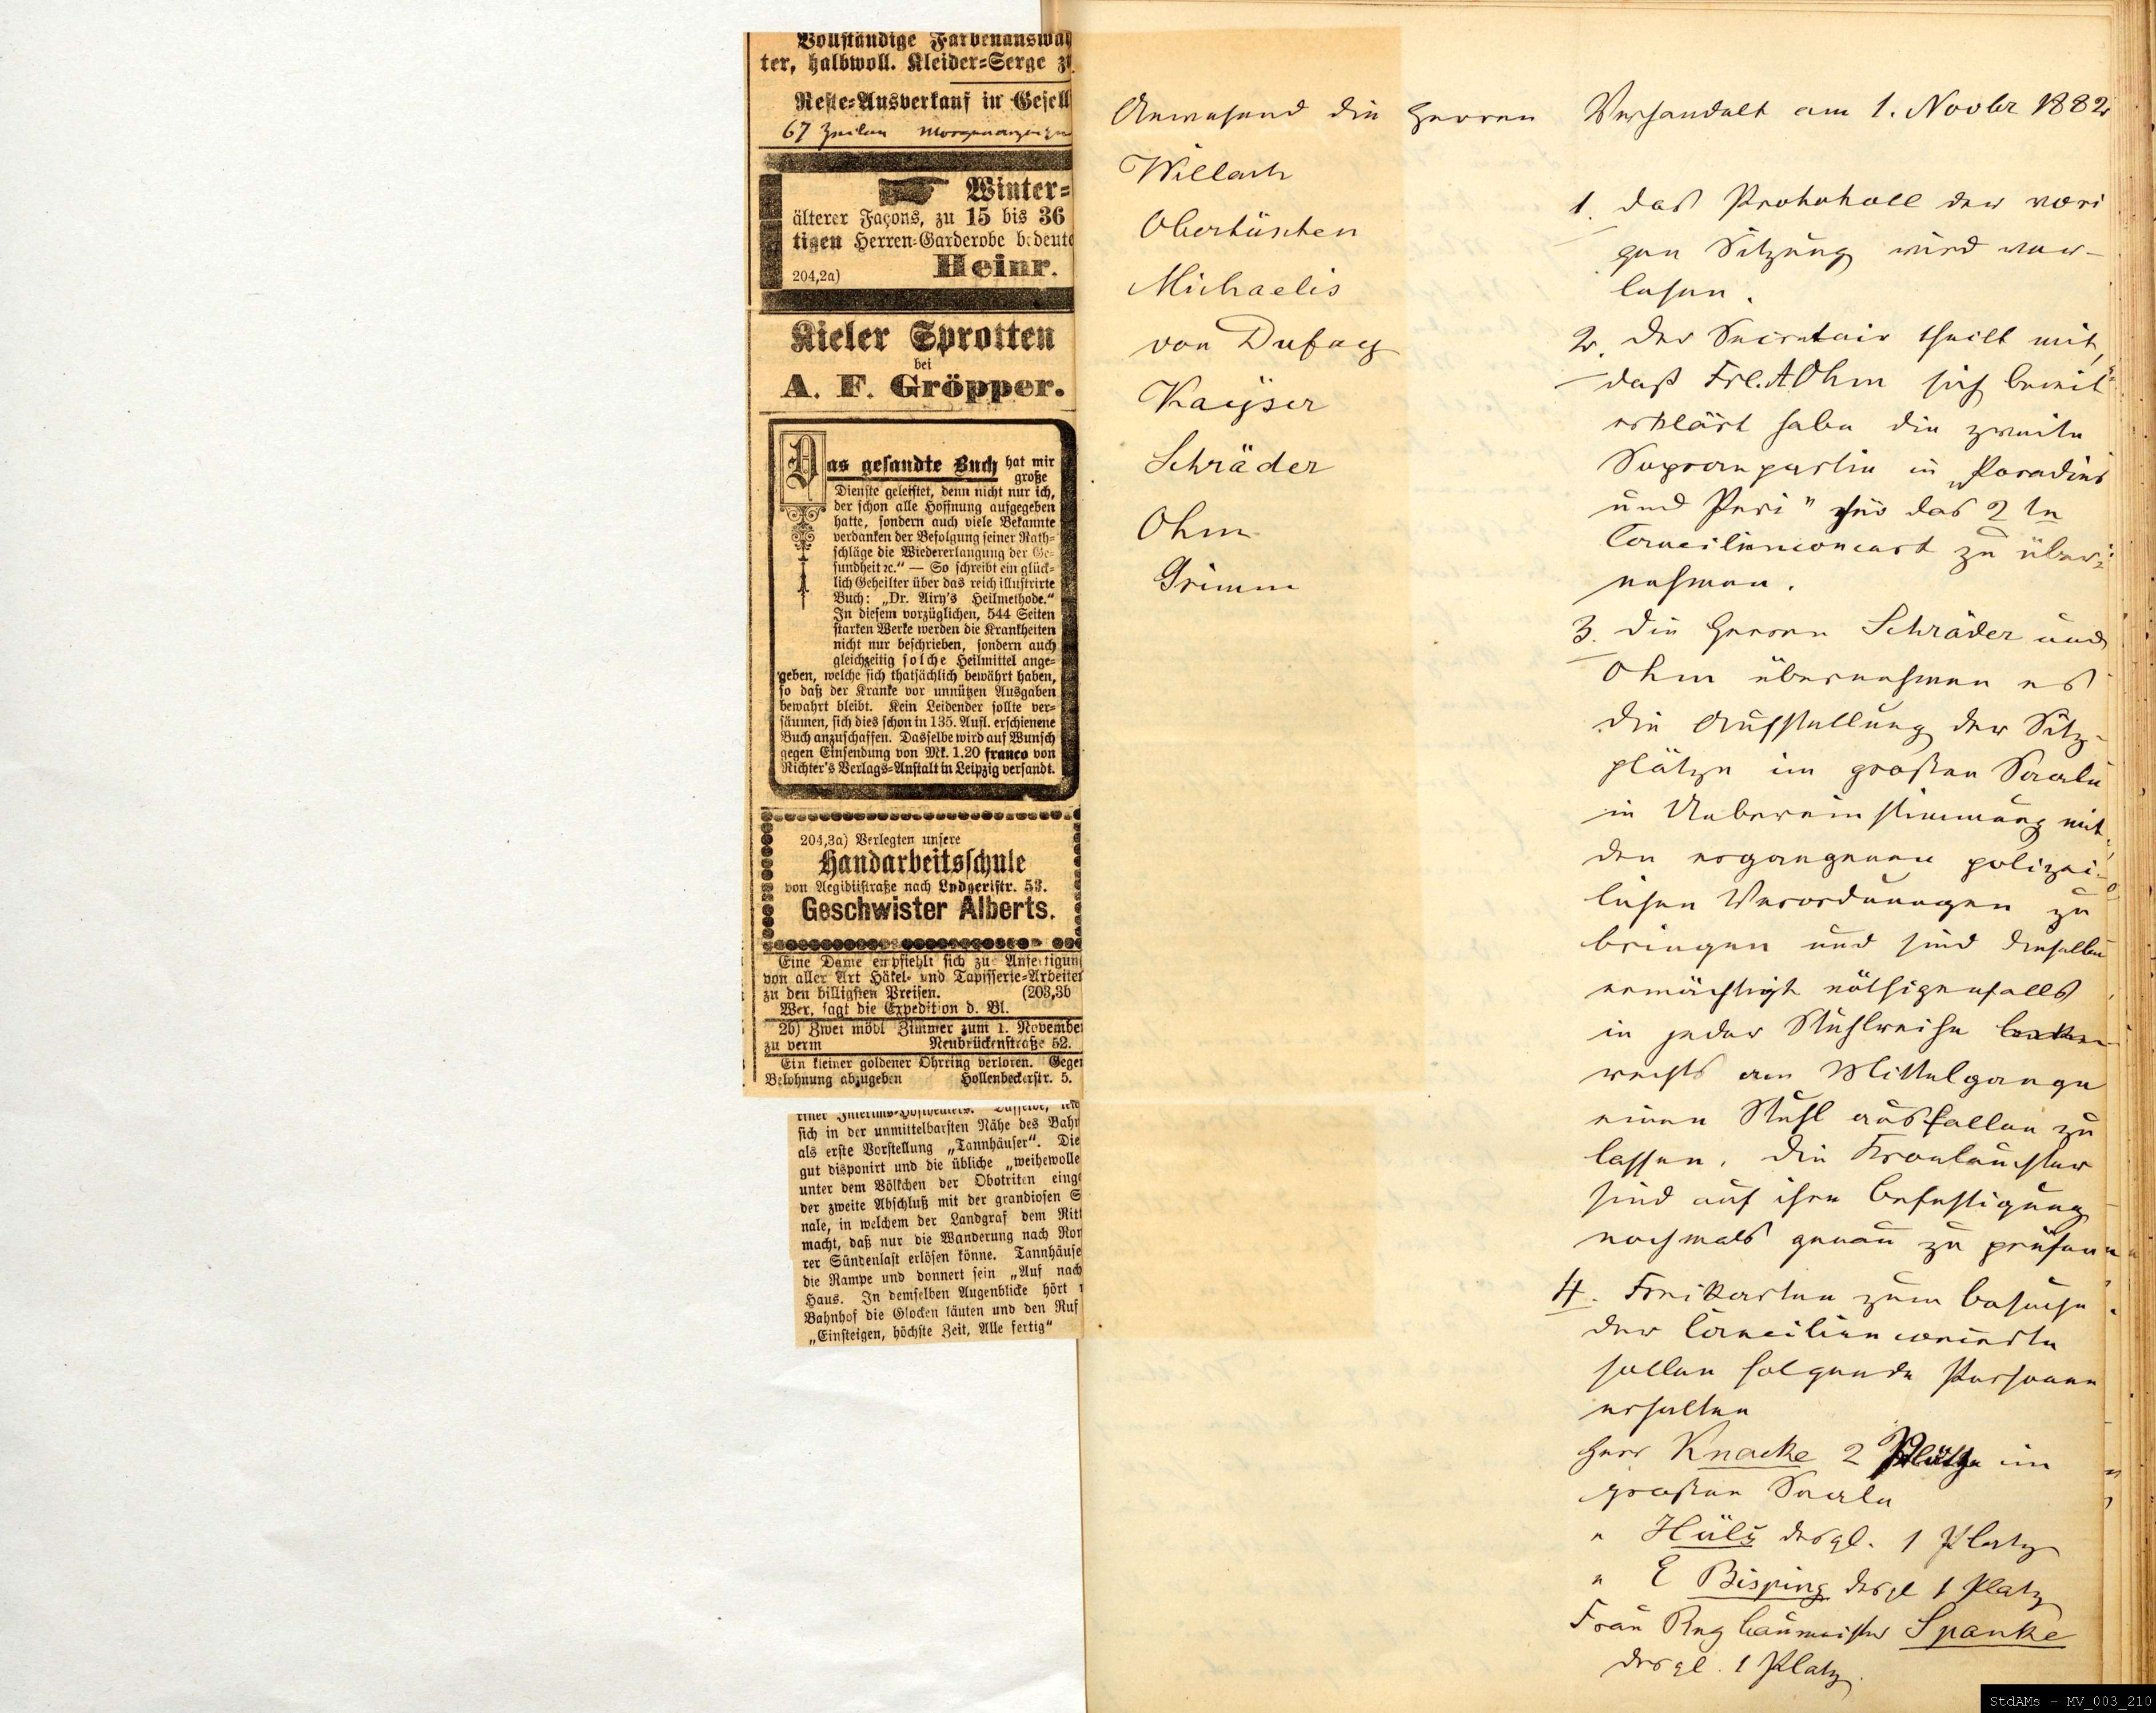 Vollständige Farbenauswah
ter, halbwoll. Kleider=Serge z
Reste=Ausverkauf in Gesell
67 Zeilen Morgenanzeige
Winter=
älterer Façons, zu 15 bis 36
tigen Herren=Garderobe bedeute
Heinr.
204,2a)
Kieler Sprotten
bei
A. F. Gröpper.
Das gesandte Buch hat mir
große
Dienste geleistet, denn nicht nur ich,
der schon alle Hoffnung aufgegeben
hatte, sondern auch viele Bekannte
verdanken der Befolgung seiner Rath=
schläge die Wiedererlangung der Ge=
sundheit ꝛc.“ — So schreibt ein glück=
lich Geheilter über das reich illustrirte
Buch: „Dr. Airy's Heilmethode.“
In diesem vorzüglichen, 544 Seiten
starken Werke werden die Krankheiten
nicht nur beschrieben, sondern auch
gleichzeitig solche Heilmittel ange=
geben, welche sich thatsächlich bewährt haben,
so daß der Kranke vor unnützen Ausgaben
bewahrt bleibt. Kein Leidender sollte ver=
säumen, sich dies schon in 135. Aufl. erschienene
Buch anzuschaffen. Dasselbe wird auf Wunsch
gegen Einsendung von Mk. 1.20 franco von
Richter's Verlags=Anstalt in Leipzig versandt.
204,3a) Verlegten unsere
Handarbeitsschule
von Aegidiistraße nach Ludgeristr. 53.
Geschwister Alberts.
Eine Dame empfiehlt sich zu Anfertigung
von aller Art Häkel- und Tapisserie=Arbeiten
zu den billigsten Preisen. (203,3b
Wer, sagt die Expedition d. Bl.
2b) Zwei möbl Zimmer zum 1. November
zu verm Neubrückenstraße 52.
Ein kleiner goldener Ohrring verloren. Gegen
Belohnung abzugeben Hollenbeckerstr. 5.
einer Interims=Hoftheaters. Dasselbe,
sich in der unmittelbarsten Nähe des Bahn
als erste Vorstellung „Tannhäuser“. Die
gut disponirt und die übliche „weihevolle
unter dem Völkchen der Obotriten eing
der zweite Abschluß mit der grandiosen S
nale, in welchem der Landgraf dem Ritt
macht, daß nur die Wanderung nach Rom
rer Sündenlast erlösen könne. Tannhäuse
die Rampe und donnert sein „Auf nach
Haus. In demselben Augenblicke hört
Bahnhof die Glocken läuten und den Ruf
„Einsteigen, höchste Zeit, Alle fertig“
Anwesend die Herren
Willach
Obertüschen
Michaelis
von Dufay
Kayser
Schräder
Ohm
Grimm
Verhandelt am 1. Novbr 1882
1. Das Protokoll der vori
gen Sitzung wird ver-
lesen.
2. Der Secretair theilt mit,
daß Frl. A Ohm sich bereit
erklärt habe die zweite
Sopranpartie in „Paradies
und Peri“ für das 2 te
Caecilienconcert zu über-
nehmen.
3. Die Herren Schräder und
Ohm übernehmen es
die Aufstellung der Sitz-
plätze im großen Saale
in Uebereinstimmung mit
den ergangenen polizei-
lichen Verordnungen zu
bringen und sind dieselben
ermächtigt nöthigenfalls
in jeder Stuhlreihe
rechts am Mittelgange
einen Stuhl ausfallen zu
lassen. Die Kronleuchter
sind auf ihre Befestigung
nochmals genau zu prüfen
4. Freikarten zum Besuche
der Caecilienconcerte
sollen folgende Personen
erhalten
Herr Knacke 2 Plätze im
großen Saale
" Hüls desgl. 1 Platz
" E Bisping desgl 1 Platz
Frau Reg Baumeister Spanke
desgl. 1 Platz.
StdAMs - MV_003_210